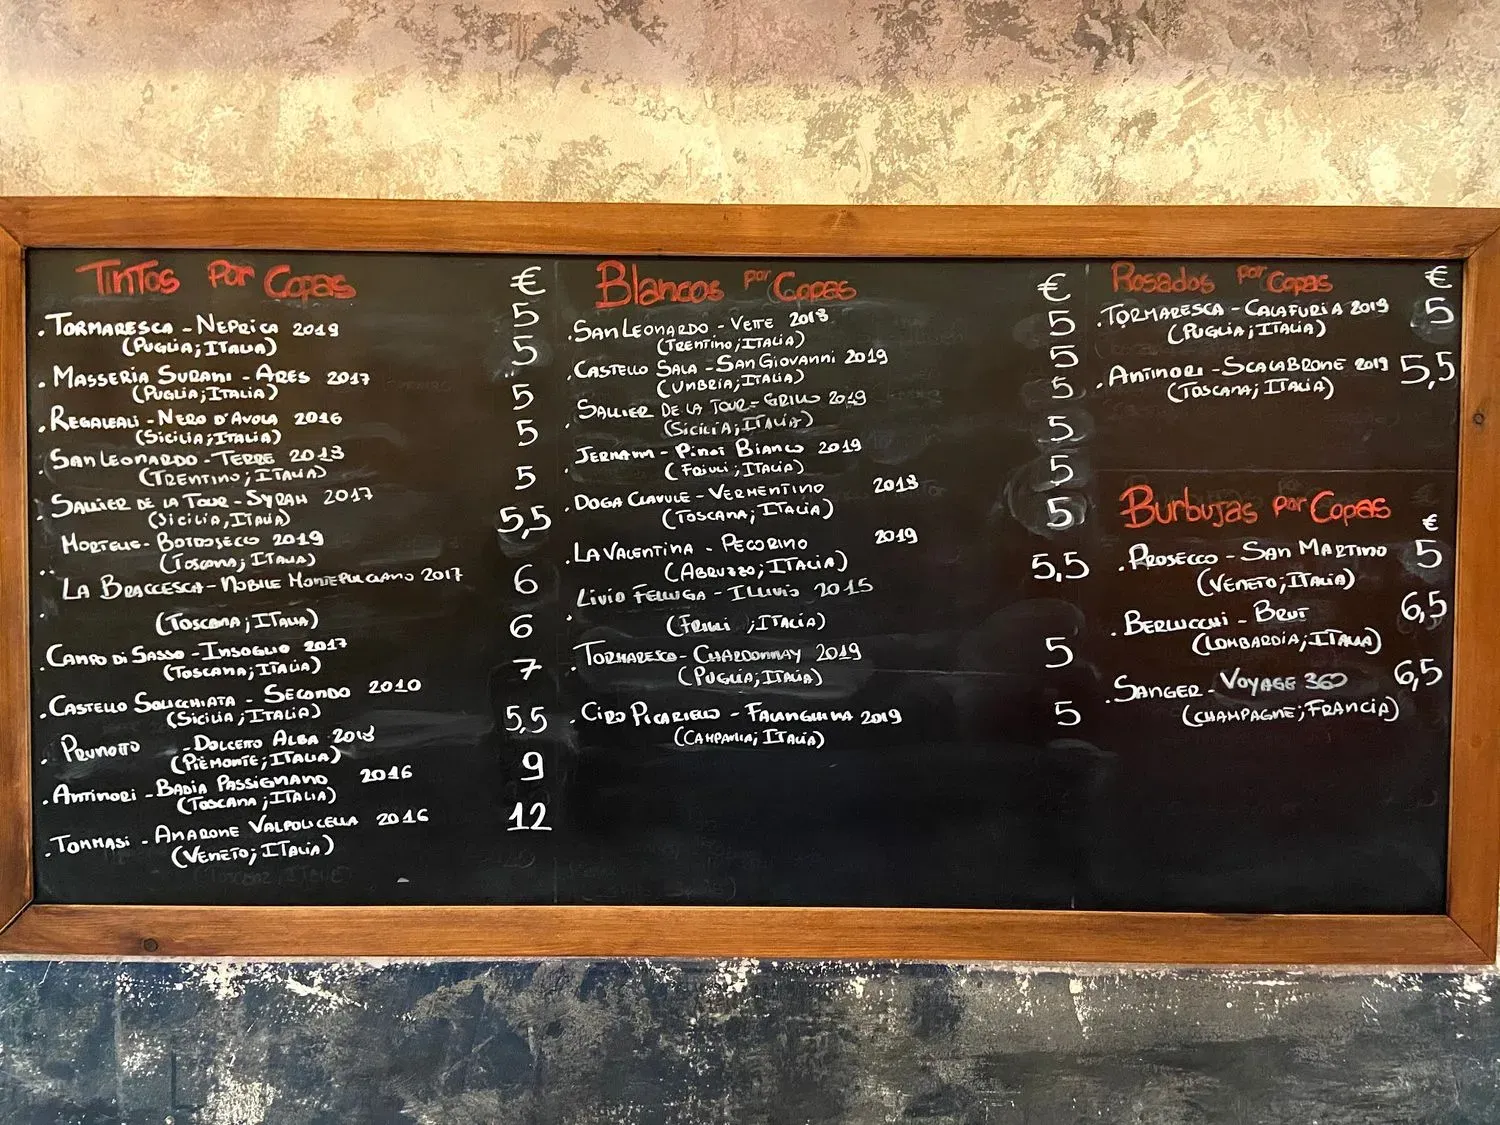 Tintos por Copas €
.Tormaresca - Neprica 2019 5
(Puglia; Italia)
.Masseria Surani - Ares 2017 5
(Puglia; Italia)
.Regaleali - Nero d'Avola 2016 5
(Sicilia; Italia)
.San Leonardo - Terre 2013 5
(Trentino; Italia)
.Sallier de la Tour - Syrah 2017 5
(Sicilia, Italia)
Mortelle - Botrosecco 2019 5,5
(Toscana; Italia)
La Braccesca - Nobile Montepulciano 2017 6
(Toscana; Italia)
.Campo di Sasso - Insoglio 2017 6
(Toscana; Italia)
.Castello Solicchiata - Secondo 2010 7
(Sicilia; Italia)
.Prunotto - Dolcetto Alba 2018 5,5
(Piemonte; Italia)
.Antinori - Badia Passignano 2016 9
(Toscana; Italia)
.Tommasi - Amarone Valpolicella 2016 12
(Veneto; Italia)
Blancos por Copas €
.San Leonardo - Vette 2018 5
(Trentino; Italia)
.Castello Sala - San Giovanni 2019 5
(Umbria; Italia)
.Sallier de la Tour - Grillo 2019 5
(Sicilia; Italia)
.Jermann - Pinot Bianco 2019 5
(Friuli; Italia)
.Doga Clavule - Vermentino 2018 5
(Toscana; Italia)
.La Valentina - Pecorino 2019 5
(Abruzzo; Italia)
Livio Felluga - Illivio 2015 5,5
(Friuli ; Italia)
.Tormaresca - Chardonnay 2019 5
(Puglia; Italia)
.Ciro Picariello - Falanghina 2019 5
(Campania; Italia)
Rosados por Copas €
.Tormaresca - Calafuria 2019 5
(Puglia; Italia)
.Antinori - Scalabrone 2019 5,5
(Toscana; Italia)
Burbujas por Copas €
.Prosecco - San Martino 5
(Veneto; Italia)
.Berlucchi - Brut 6,5
(Lombardia; Italia)
.Sanger - Voyage 360 6,5
(Champagne; Francia)